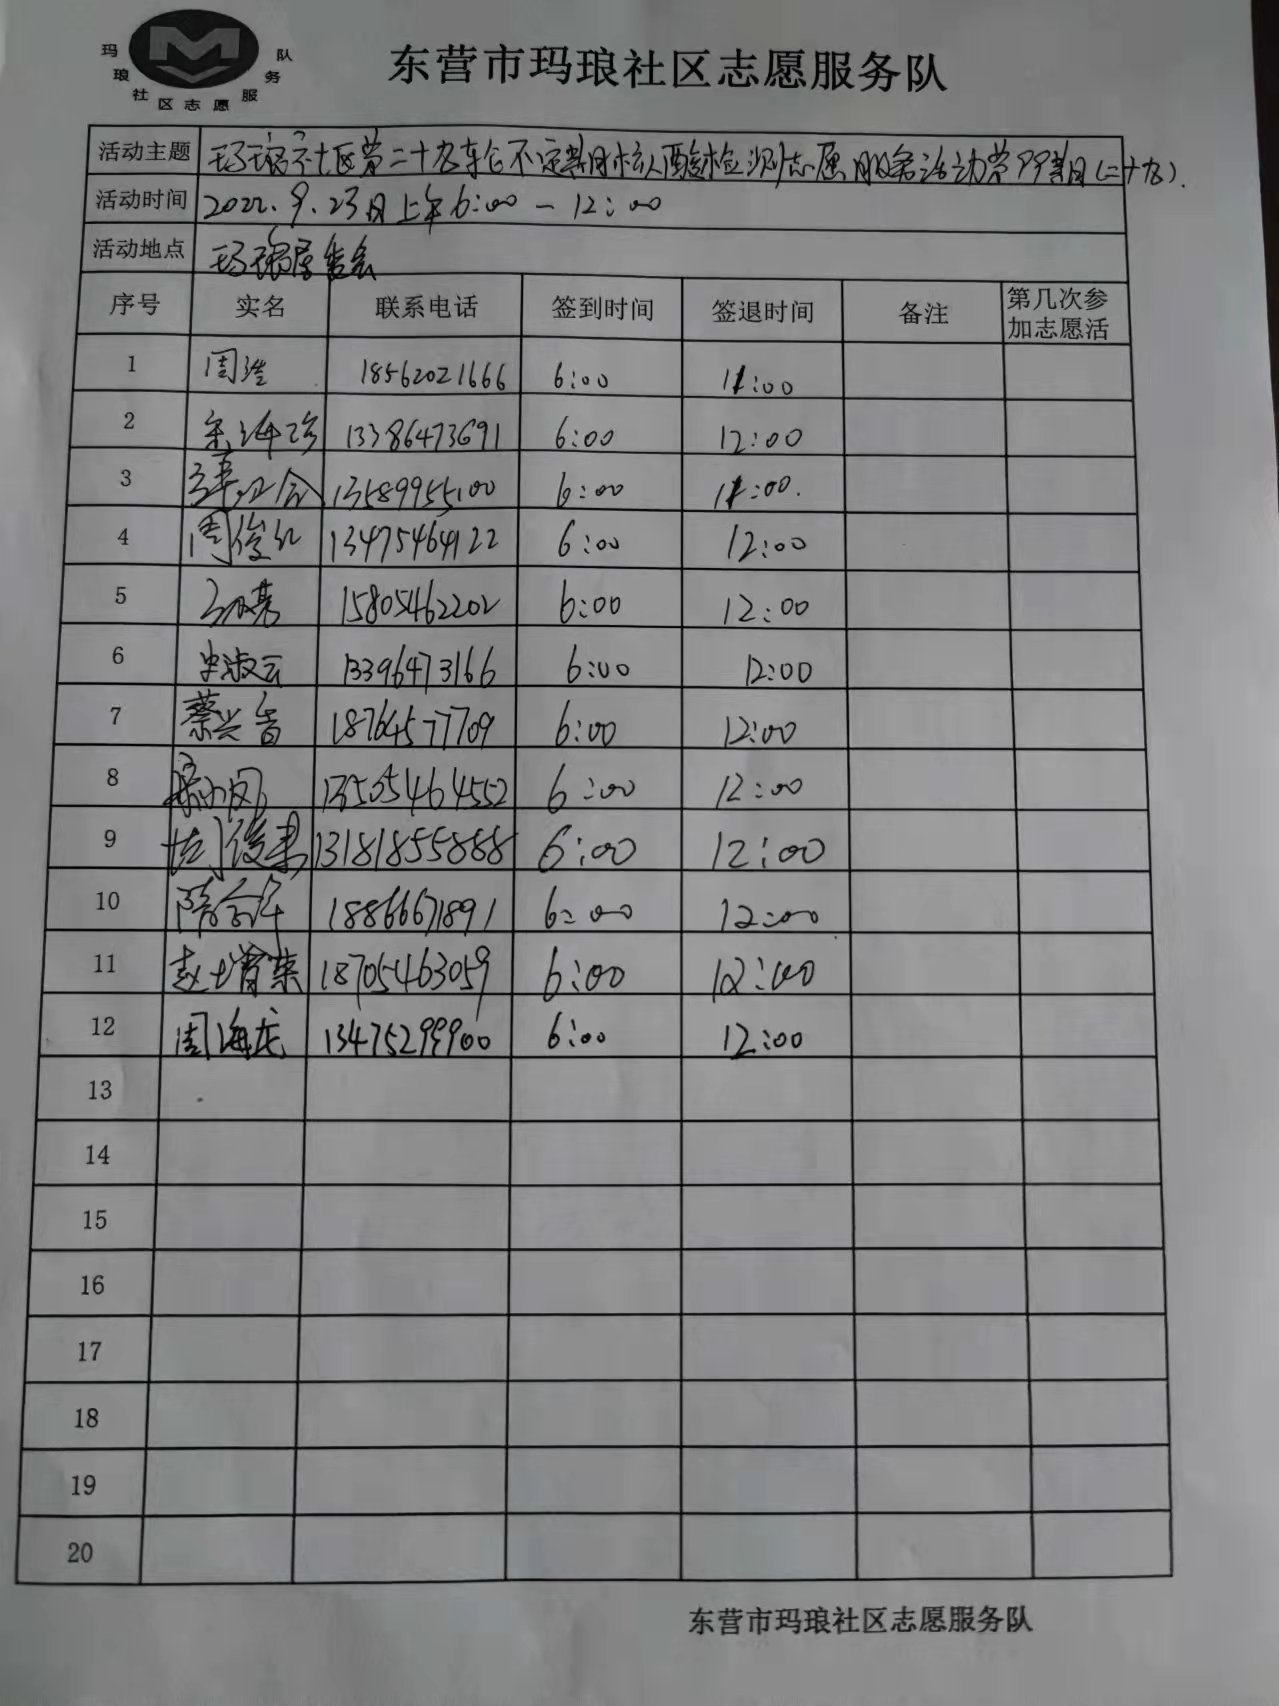 玛琅社区志愿服务队
东营市玛琅社区志愿服务队
活动主题 玛琅社区第二十九轮不定期核酸检测志愿服务活动第99期(二十九).
活动时间 2022.9.23日上午6:00-12:00
活动地点 玛琅居委会
序号 实名 联系电话 签到时间 签退时间 备注 第几次参加志愿活
1 周 18562021666 6:00 11:00
2 宋海珍 13386473691 6:00 12:00
3 13589955100 6:00 11:00.
4 周俊红 13475464122 6:00 12:00
5 15805462202 6:00 12:00
6 史淑云 13396473166 6:00 12:00
7 蔡兴香 18764577709 6:00 12:00
8 小凤 13505464552 6:00 12:00
9 13181855888 6:00 12:00
10 隋 18866671891 6:00 12:00
11 赵增荣 18705463059 6:00 12:00
12 周海龙 13475299900 6:00 12:00
13
14
15
16
17
18
19
20
东营市玛琅社区志愿服务队